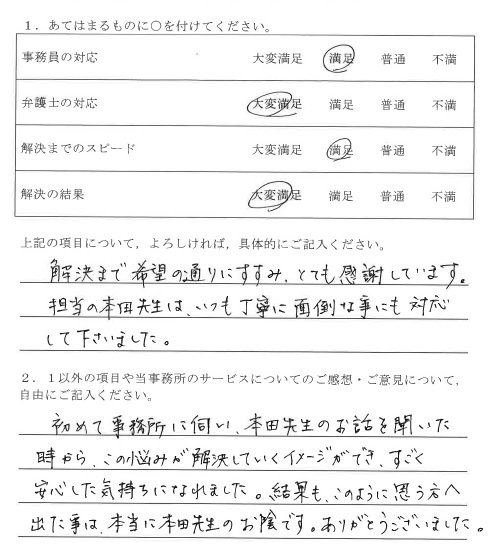 １．あてはまるものに○を付けてください。
事務員の対応 大変満足 満足 普通 不満
弁護士の対応 大変満足 満足 普通 不満
解決までのスピード 大変満足 満足 普通 不満
解決の結果 大変満足 満足 普通 不満
上記の項目について，よろしければ，具体的にご記入ください。
解決まで希望の通りにすすみ、とても感謝しています。
担当の本田先生は、いつも丁寧に面倒な事にも対応
して下さいました。
２．１以外の項目や当事務所のサービスについてのご感想・ご意見について，
自由にご記入ください。
初めて事務所に伺い、本田先生のお話を聞いた
時から、この悩みが解決していくイメージができ、すごく
安心した気持ちになれました。結果も、このように思う方へ
出た事は、本当に本田先生のお陰です。ありがとうございました。